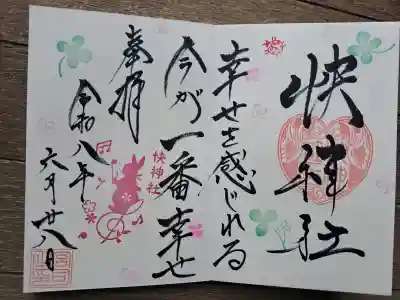 快神社
幸せを感じれる
今が一番幸せ
奉拝
令和八年
六月廿八日
快神社